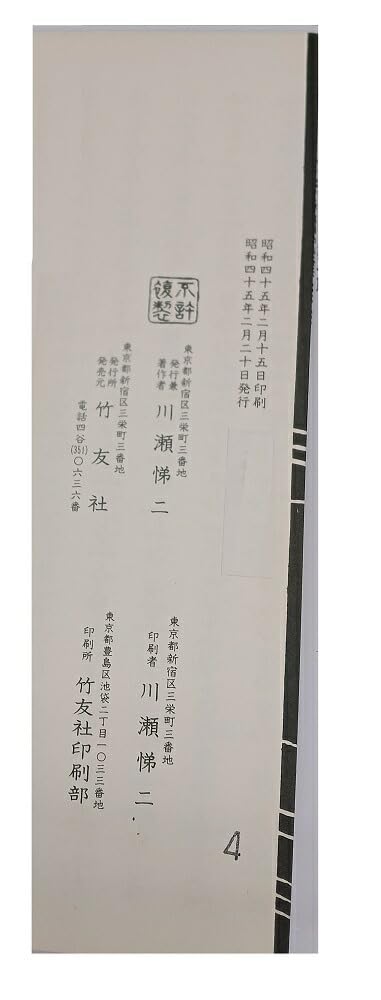 昭和四十五年二月十五日印刷
昭和四十五年二月二十日発行
不許
復製
東京都新宿区三栄町三番地
発行兼
著作者
川瀬悌二
東京都新宿区三栄町三番地
発行所
発売元
竹友社
電話四谷(351)〇六三六番
東京都新宿区三栄町三番地
印刷者
川瀬悌二
東京都豊島区池袋二丁目一〇三三番地
印刷所
竹友社印刷部
4